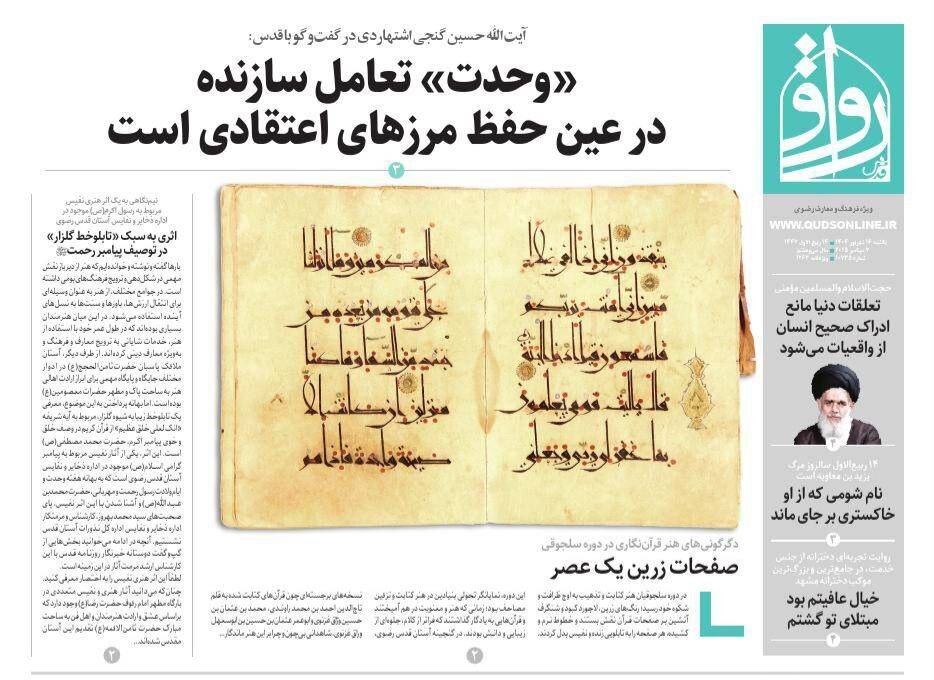 آیت‌الله حسین گنجی اشتهاردی در گفت‌وگو با قدس:
«وحدت» تعامل سازنده
در عین حفظ مرزهای اعتقادی است
۳
رواق
قدس
ویژه فرهنگ و معارف رضوی
WWW.QUDSONLINE.IR
حجت‌الاسلام والمسلمین مؤمنی
تعلقات دنیا مانع
ادراک صحیح انسان
از واقعیات می‌شود
۴
۱۴ ربیع‌الاول سالروز مرگ
یزید بن معاویه است
نام شومی که از او
خاکستری بر جای ماند
۳
روایت تجربه‌ای دخترانه از جنس
خدمت، در جامع‌ترین و بزرگ‌ترین
موکب دخترانه مشهد
خیال عافیتم بود
مبتلای تو گشتم
۴
دگرگونی‌های هنر قرآن‌نگاری در دوره سلجوقی
صفحات زرین یک عصر
در دوره سلجوقیان هنر کتابت و تذهیب به اوج ظرافت و
شکوه خود رسید؛ رنگ‌های زرین، لاجورد کبود و شنگرف
آتشین بر صفحات قرآن نقش بستند و خطوط نرم و
کشیده، هر صفحه را به تابلویی زنده و نفیس بدل کردند.
این دوره، نمایانگر تحولی بنیادین در هنر کتابت و تزئین
مصاحف بود؛ زمانی که هنر و معنویت در هم آمیختند
و قرآن‌هایی به یادگار گذاشتند که فراتر از کلام، جلوه‌ای از
زیبایی و دانش بودند. در گنجینه آستان قدس رضوی،
نسخه‌های برجسته‌ای چون قرآن‌های کتابت شده به قلم
تاج‌الدین احمد بن محمد راوندی، محمد بن عثمان بن
حسین وراق غزنوی و ابوعمر عثمان بن حسین بن ابوسهل
وراق غزنوی، شاهدانی بی‌چون و چرا بر این هنر ماندگار...
۲
نیم‌نگاهی به یک اثر هنری نفیس
مربوط به رسول اکرم(ص) موجود در
اداره ذخایر و نفایس آستان قدس رضوی
اثری به سبک «تابلوخط گلزار»
در توصیف پیامبر رحمت
بارها گفته و نوشته و خوانده‌ایم که هنر از دیرباز نقش
مهمی در شکل‌دهی و ترویج فرهنگ‌های بومی داشته
است. در جوامع مختلف، از هنر به عنوان وسیله‌ای
برای انتقال ارزش‌ها، باورها و سنت‌ها به نسل‌های
آینده استفاده می‌شود. در این میان هنرمندان
بسیاری بوده‌اند که در طول عمر خود با استفاده از
هنر، خدمات شایانی به ترویج معارف و فرهنگ و
به‌ویژه معارف دینی کرده‌اند. از طرف دیگر، آستان
ملائک پاسبان حضرت ثامن‌الحجج(ع) در ادوار
مختلف جایگاه و پایگاه مهمی برای ابراز ارادت اهالی
هنر به ساحت پاک و مطهر حضرات معصومین(ع)
بوده است. اما بهانه پرداختن به این موضوع، معرفی
یک تابلوخط زیبا به شیوه گلزار، مربوط به آیه شریفه
«انک لعلی خلق عظیم» از قرآن کریم در وصف خلق
و خوی پیامبر اکرم، حضرت محمد مصطفی(ص)
است. این اثر، یکی از آثار نفیس مربوط به پیامبر
گرامی اسلام(ص) موجود در اداره ذخایر و نفایس
آستان قدس رضوی است که به بهانه هفته وحدت و
ایام ولادت رسول رحمت و مهربانی، حضرت محمد بن
عبدالله(ص) و آشنا شدن با این اثر نفیس، پای
صحبت‌های سید محمد بهروز، کارشناس و مرمتکار
اداره ذخایر و نفایس اداره کل نذورات آستان قدس
نشستیم. آنچه در ادامه می‌خوانید بخش‌هایی از
گپ‌وگفت دوستانه خبرنگار روزنامه قدس با این
کارشناس ارشد مرمت آثار در این زمینه است.
لطفاً این اثر هنری نفیس را به اختصار معرفی کنید.
چنان که می‌دانید آثار هنری و نفیس متعددی در
بارگاه مطهر امام رئوف حضرت رضا(ع) وجود دارد که
براساس عشق و ارادت هنرمندان و اهل فن به ساحت
مبارک حضرت ثامن‌الائمه(ع) تقدیم این آستان
مقدس شده‌اند...
۲